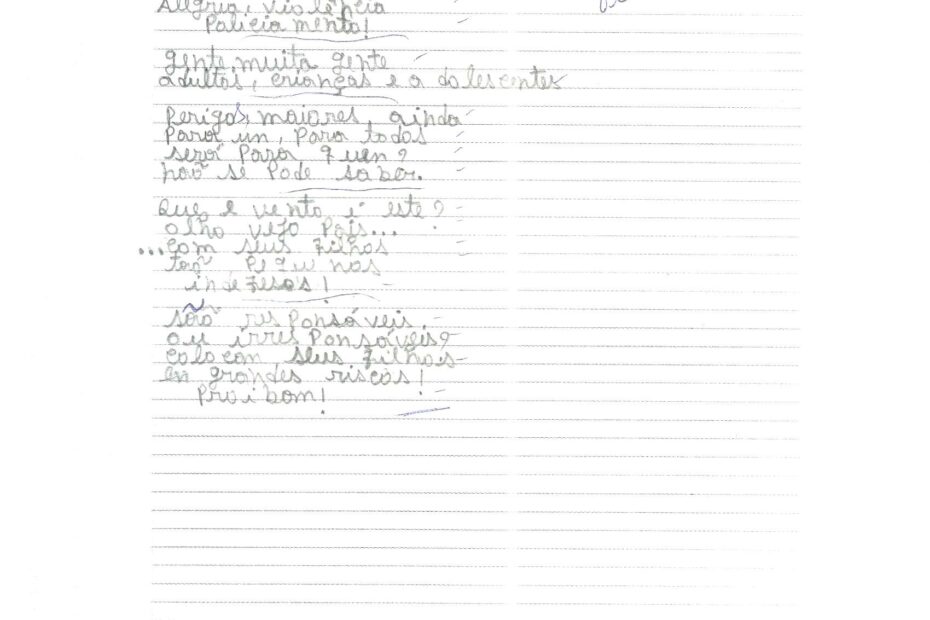 Alegria, violência
Policia mento!
gente muita gente
adultos, crianças e a dolescentes
Perigos, maiores, ainda
Para um, Para todos
será Para quen?
não se Pode saber.
Que, e vento é este?
olho vejo Pais...
...com seus filhos
tão Pequ nos
indefesos!
são res Ponsáveis,
ou irres Ponsáveis?
colocan, seus filhos
en grandes riscos!
Proi bam!